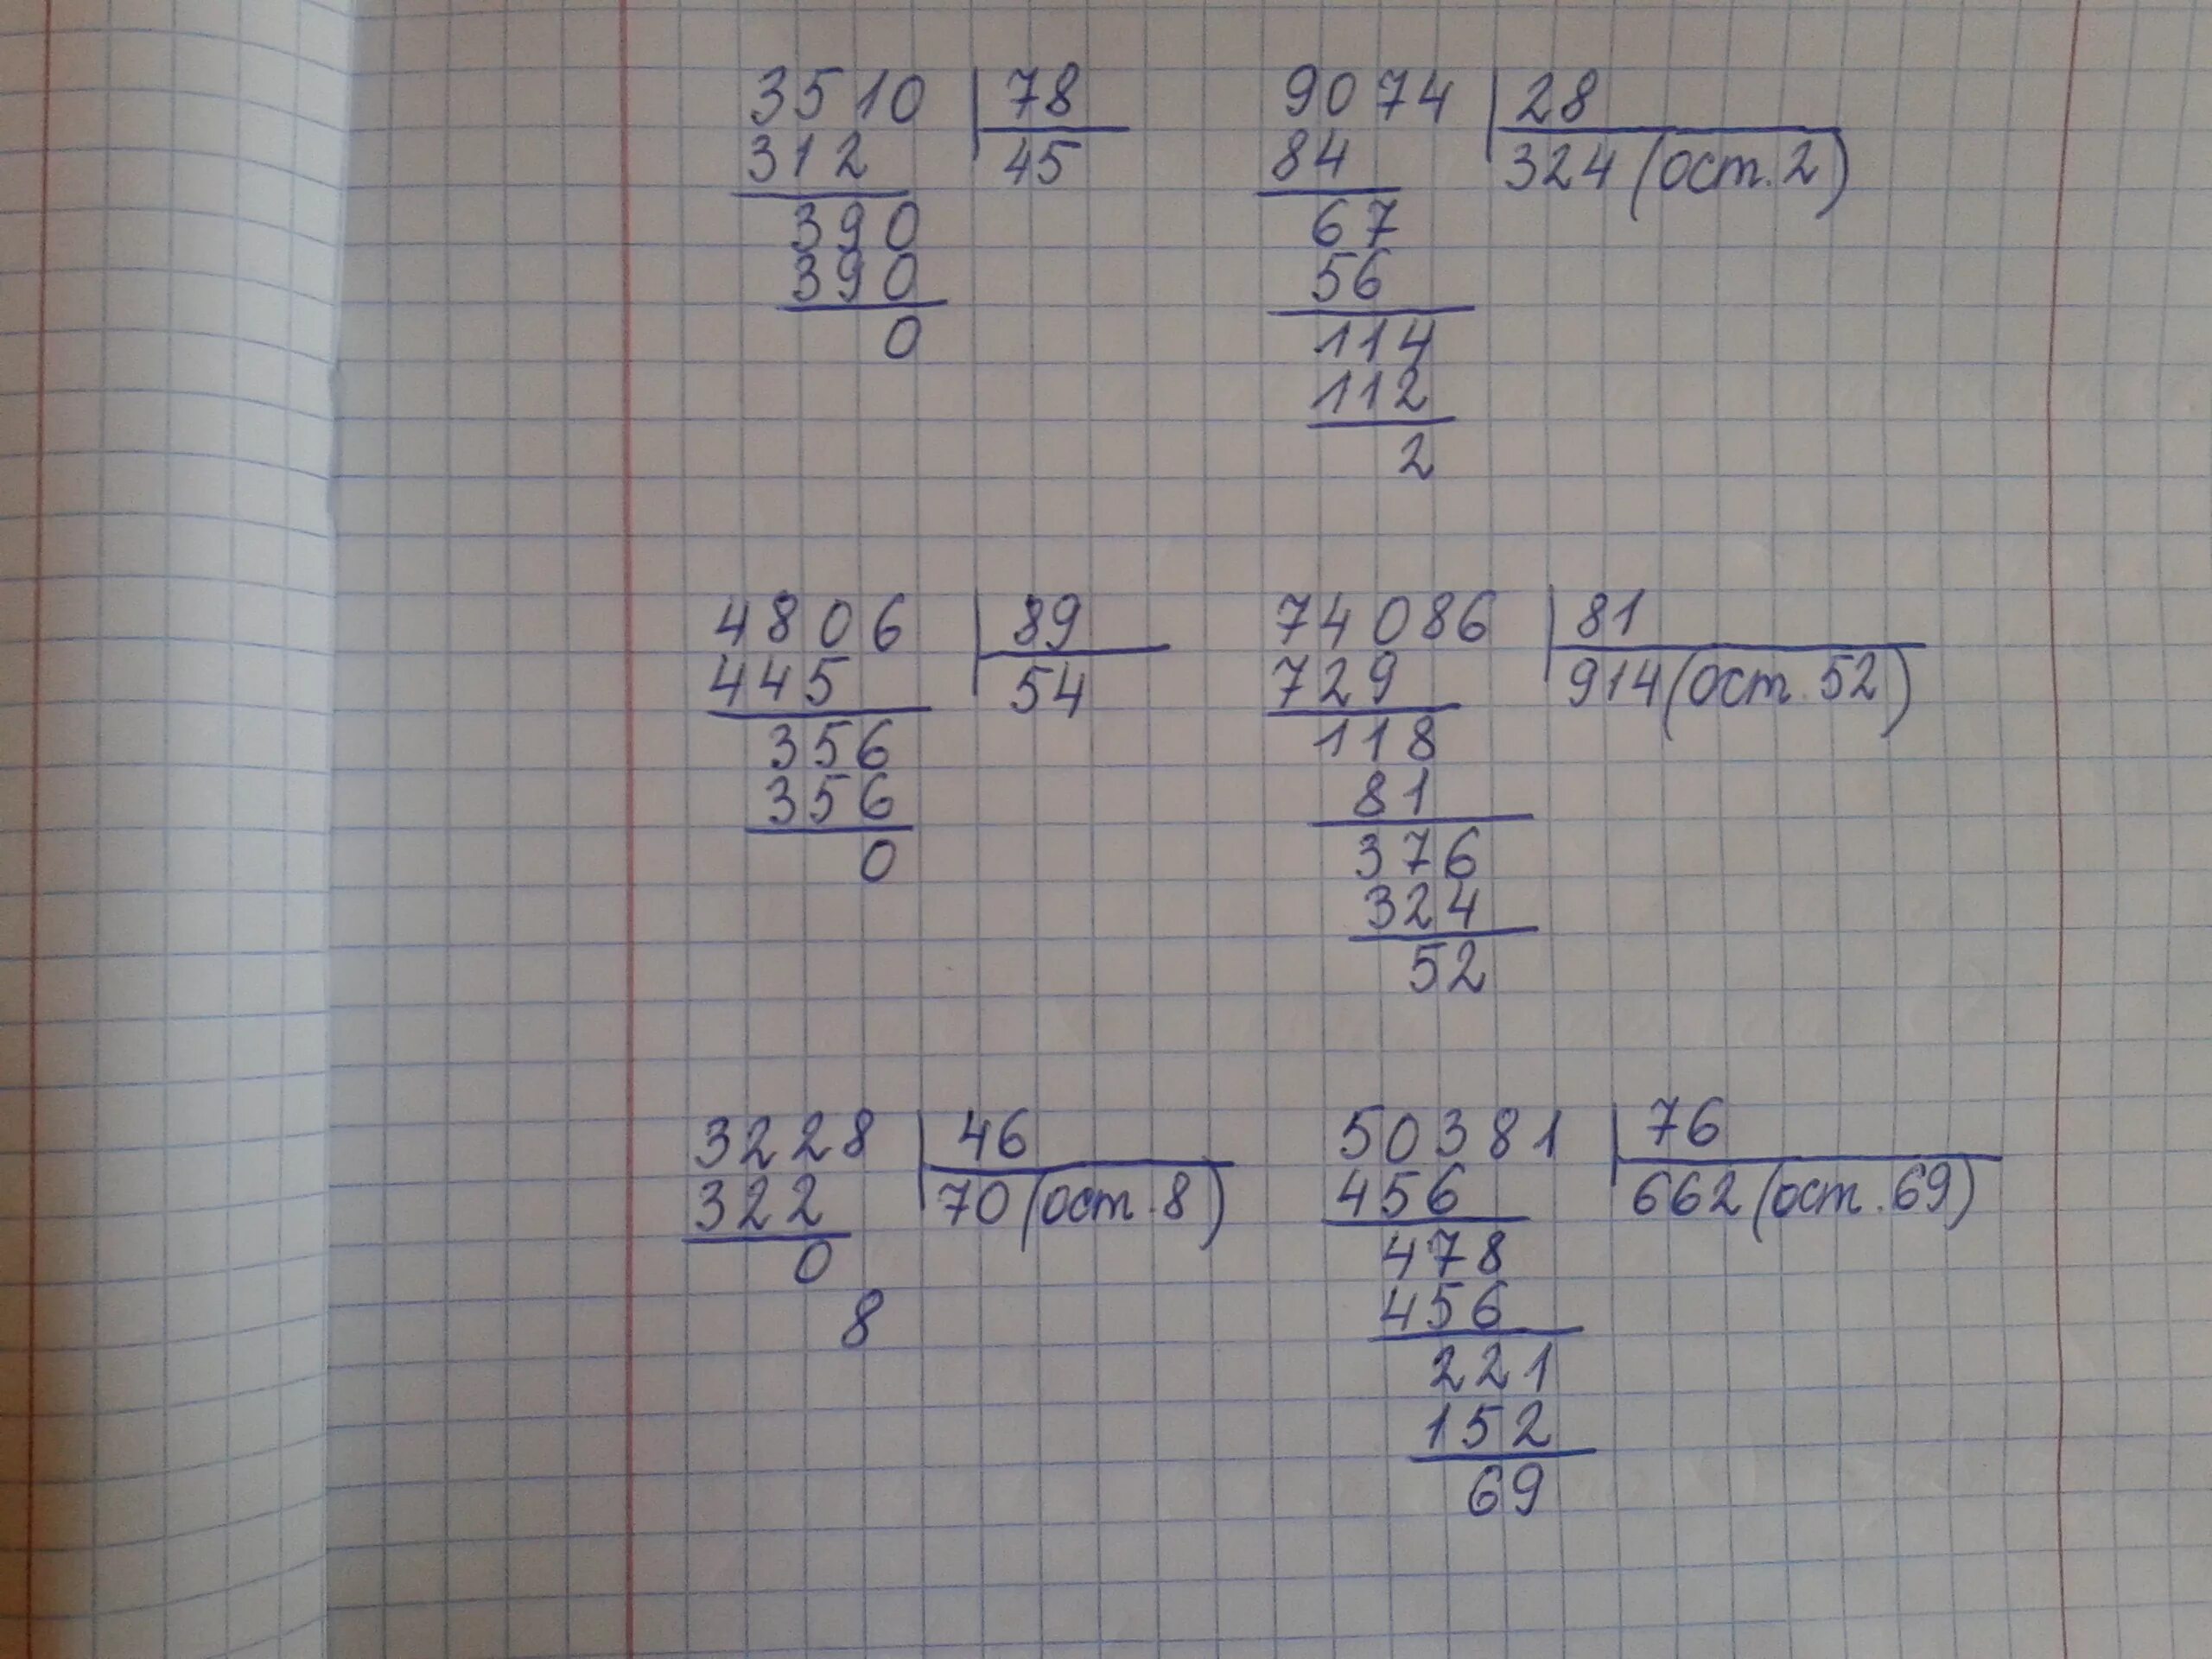 3510 78
312 45
390
390
0
9074 28
84 324 (ост. 2)
67
56
114
112
2
4806 89
445 54
356
356
0
74086 81
729 914 (ост. 52)
118
81
376
324
52
3228 46
322 70 (ост. 8)
0
8
50381 76
456 662 (ост. 69)
478
456
221
152
69